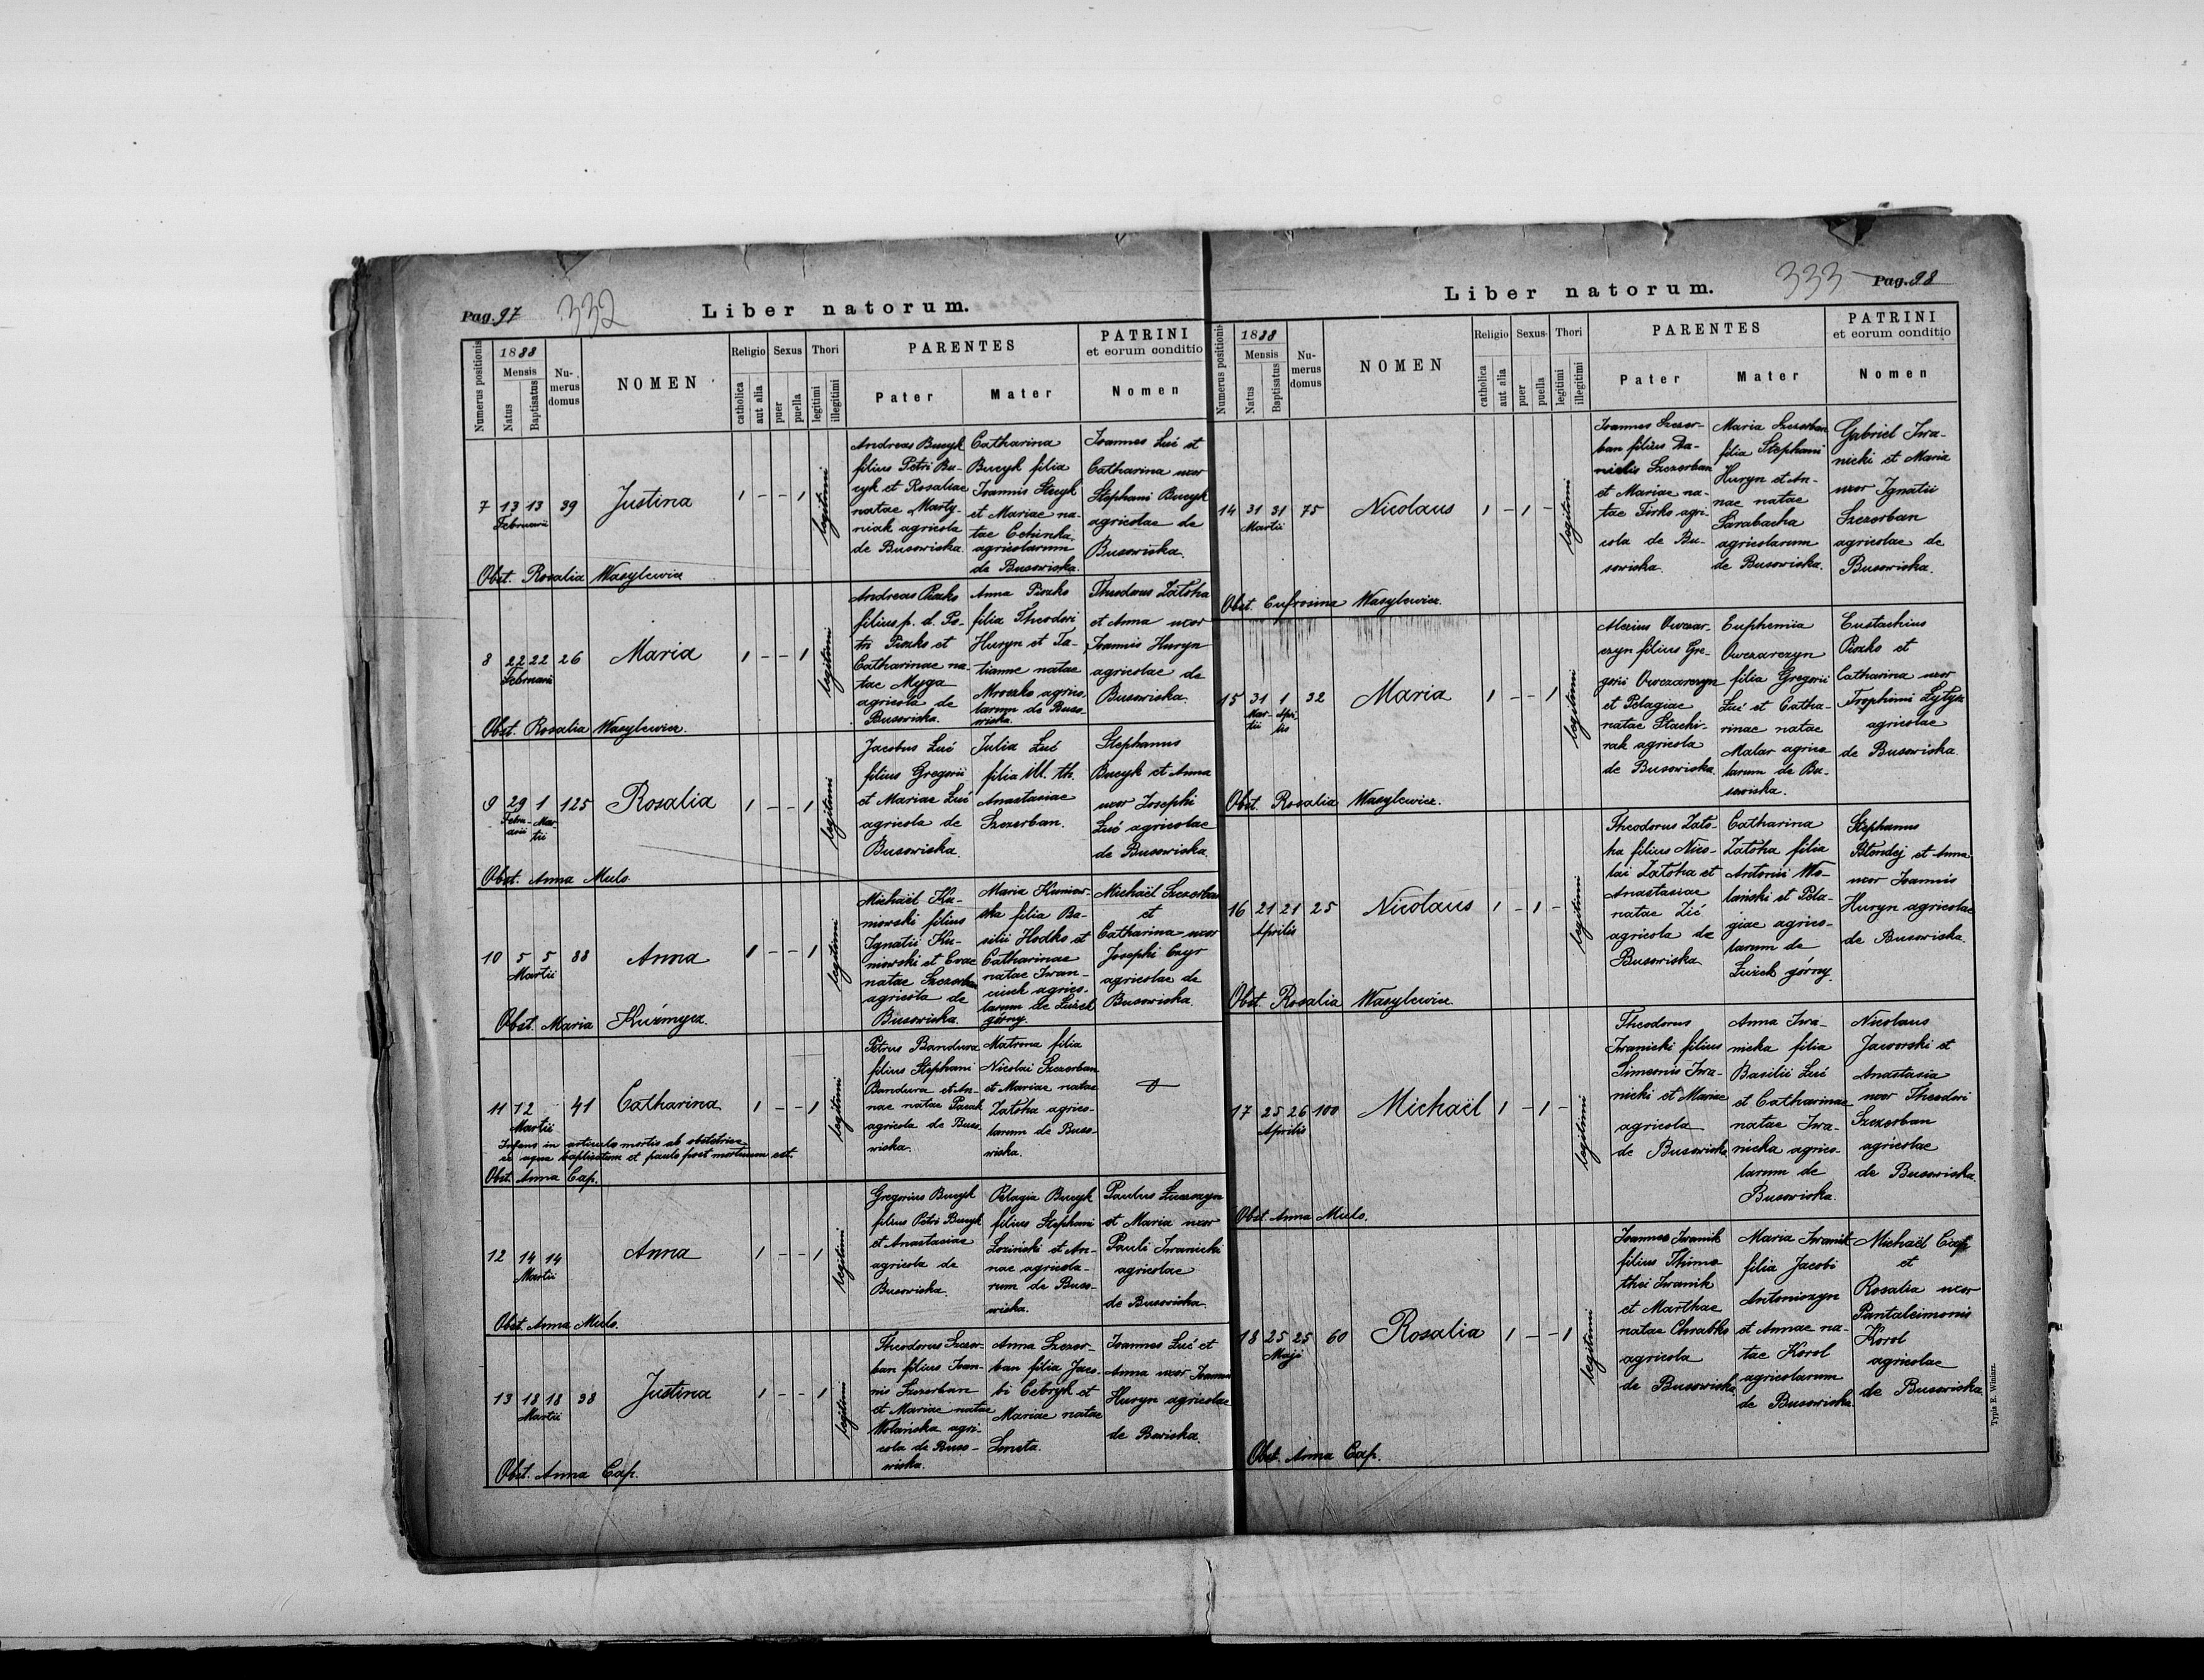 Pag. 97
332
Liber natorum.
Numerus positionis
1888
Mensis
Natus
Baptisatus
Nu-
merus
domus
NOMEN
Religio
catholica
aut alia
Sexus
puer
puella
Thori
legitimi
illegitimi
PARENTES
Pater
Mater
PATRINI
et eorum conditio
Nomen
7 13 13 39 Justina 1 - - 1 legitimi
Februarii
Andreas Bucyk
filius Petri Bu-
cyk et Rosaliae
natae Marty-
niak agricola
de Busowiska.
Catharina
Bucyk filia
Joannis Stecyk
et Mariae na-
tae
agricolarum
de Busowiska.
Joannes Łuć et
Catharina uxor
Stephani Bucyk
agricolae de
Busowiska.
Obst. Rosalia Wasylewicz
8 22 22 26 Maria 1 - - 1 legitimi
Februarii
Andreas Piszko
filius p. d. Pe-
tri Piszko et
Catharinae na-
tae Myga
agricola de
Busowiska.
Anna Piszko
filia Theodori
Huryn et Ta-
tianne natae
Mroczko agrico-
larum de Buso-
wiska.
Theodorus Zatoha
et Anna uxor
Joannis Huryn
agricolae de
Busowiska.
Obst. Rosalia Wasylewicz.
9 29 1 125 Rosalia 1 - - 1 legitimi
Febru- Mar-
arii tii
Jacobus Łuć
filius Gregorii
et Mariae Łuć
agricola de
Busowiska.
Julia Łuć
filia ill. th.
Anastasiae
Szczerban.
Stephanus
Bucyk et Anna
uxor Josephi
Łuć agricolae
de Busowiska.
Obst. Anna Muls.
10 5 5 88 Anna 1 - - 1 legitimi
Martii
Michaël Ku-
niowski filius
Ignatii Ku-
niowski et Evae
natae Szczerban
agricola de
Busowiska.
Maria Kuniow-
ska filia Ba-
silii Hodko et
Catharinae
natae Iwan-
ciuk agrico-
larum de Łużek
górny.
Michaël Szczerban
et
Catharina uxor
Josephi Czyr
agricolae de
Busowiska.
Obst. Maria Kuźmycz.
11 12 41 Catharina 1 - - 1 legitimi
Martii
Petrus Bandura
filius Stephani
Bandura et An-
nae natae Pacak
agricola de Buso-
wiska.
Matrona filia
Nicolai Szczerban
et Mariae natae
Zatoha agrico-
larum de Buso-
wiska.
Infans in articulo mortis ab obstetrice
ex aqua baptisatum et paulo post mortuum est.
Obst. Anna Cap.
12 14 14 Anna 1 - - 1 legitimi
Martii
Gregorius Bucyk
filius Petri Bucyk
et Anastasiae
agricola de
Busowiska.
Pelagia Bucyk
filius Stephani
Łoziński et An-
nae agricola-
rum de Buso-
wiska.
Paulus
et Maria uxor
Pauli Iwanicki
agricolae
de Busowiska.
Obst. Anna Muls.
13 18 18 38 Justina 1 - - 1 legitimi
Martii
Theodorus Szczer-
ban filius Joan-
nis Szczerban
et Mariae natae
Wolańska agri-
cola de Buso-
wiska.
Anna Szczer-
ban filia Jaco-
bi Cebryk et
Mariae natae
Joannes Łuć et
Anna uxor Joannis
Huryn agricolae
de Bowiska.
Obst. Anna Cap.
Liber natorum.
333
Pag. 98
Numerus positionis
1888
Mensis
Natus
Baptisatus
Nu-
merus
domus
NOMEN
Religio
catholica
aut alia
Sexus
puer
puella
Thori
legitimi
illegitimi
PARENTES
Pater
Mater
PATRINI
et eorum conditio
Nomen
14 31 31 75 Nicolaus 1 - 1 - legitimi
Martii
Joannes Szczer-
ban filius Da-
nielis Szczerban
et Mariae na-
tae Firko agri-
cola de Bu-
sowiska.
Maria Szczerban
filia Stephani
Huryn et An-
nae natae
Sarabacha
agricolarum
de Busowiska.
Gabriel Iwa-
nicki et Maria
uxor Ignatii
Szczerban
agricolae de
Busowiska.
Obst. Eufrosina Wasylewicz.
15 31 1 32 Maria 1 - - 1 legitimi
Mar- Apri-
tii lis
Alexius Owczar-
czyn filius Gre-
gorii Owczarczyn
et Pelagiae
natae Stachi-
rak agricola
de Busowiska.
Euphemia
Owczarczyn
filia Gregorii
Łuć et Catha-
rinae natae
Malar agrico-
larum de Bu-
sowiska.
Eustachius
Piszko et
Catharina uxor
Trophimi Łytycz
agricolae
de Busowiska.
Obst. Rosalia Wasylewicz.
16 21 21 25 Nicolaus 1 - 1 - legitimi
Aprilis
Theodorus Zato-
ha filius Nico-
lai Zatoha et
Anastasiae
natae Zić
agricola de
Busowiska.
Catharina
Zatoha filia
Antonii Wo-
lański et Pela-
giae agrico-
larum de
Łużek górny.
Stephanus
Błondej et Anna
uxor Joannis
Huryn agricolae
de Busowiska.
Obst. Rosalia Wasylewicz.
17 25 26 100 Michaël 1 - 1 - legitimi
Aprilis
Theodorus
Iwanicki filius
Simeonis Iwa-
nicki et Mariae
agricola
de Busowiska
Anna Iwa-
nicka filia
Basilii Łuć
et Catharinae
natae Iwa-
nicka agrico-
larum de
Busowiska.
Nicolaus
Jaworski et
Anastasia
uxor Theodori
Szczerban
agricolae
de Busowiska.
Obst. Anna Muls.
18 25 25 60 Rosalia 1 - - 1 legitimi
Maji
Joannes Iwanik
filius Thimo-
thei Iwanik
et Marthae
natae Chrabko
agricola
de Busowiska.
Maria Iwanik
filia Jacobi
Antoniszyn
et Annae na-
tae Korol
agricolarum
de Busowiska.
Michaël Cap
et
Rosalia uxor
Pantaleimonis
Korol
agricolae
de Busowiska.
Obst. Anna Cap.
Typis E. Winiarz.